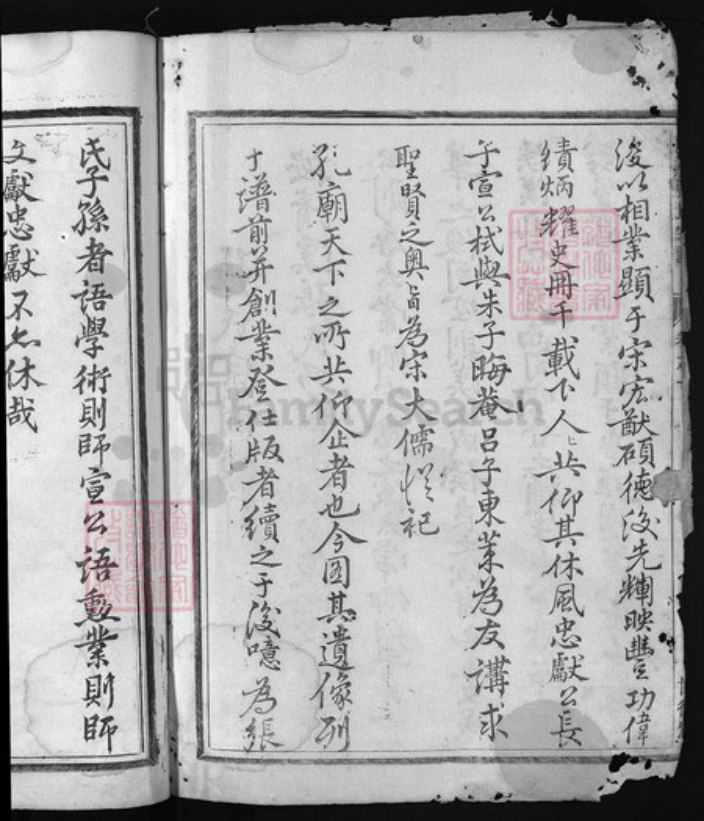 浚以相業顯于宋宏猷碩德後先輝映豐功偉
績炳耀史冊千載下人人共仰其休風忠獻公長
子宣公栻與朱子晦菴呂子東萊為友講求
聖賢之奧旨為宋大儒從祀
孔廟天下之所共仰企者也今圖其遺像列
于譜前并創業登仕版者續之于後噫為張
氏子孫者語學術則師宣公語勳業則師
文獻忠獻不亦休哉
FamilySearch